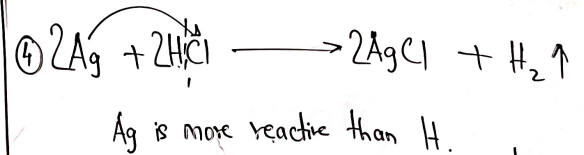 ④ 2Ag + 2HCl ⟶ 2AgCl + H₂ ↑
Ag is more reactive than H.